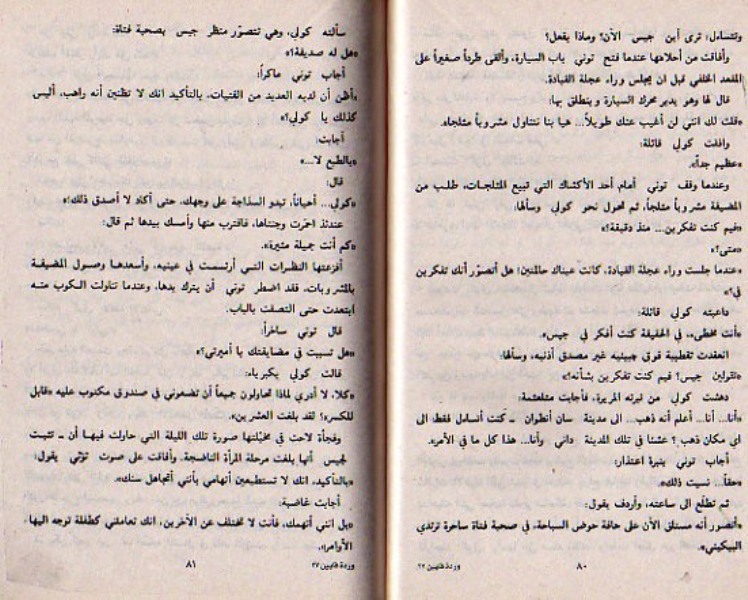 وتتساءل: ترى أين جيس الآن؟ وماذا يفعل؟
وأفاقت من أحلامها عندما فتح توني باب السيارة، وألقى طرداً صغيراً على
المقعد الخلفي قبل ان يجلس وراء عجلة القيادة.
قال لها وهو يدير محرك السيارة وينطلق بها:
«قلت لك انني لن أغيب عنك طويلاً... هيا بنا نتناول مشروباً مثلجاً».
وافقت كولي قائلة:
«عظيم جداً».
وعندما وقف توني أمام أحد الأكشاك التي تبيع المثلجات، طلب من
المضيفة مشروباً مثلجاً، ثم تحول نحو كولي وسألها:
«فيم كنت تفكرين... منذ دقيقة؟»
«متى؟»
«عندما جلست وراء عجلة القيادة، كانت عيناك حالمتين؛ هل أتصوّر أنك تفكرين
في؟»
داعبته كولي قائلة:
«أنت مخطىء، في الحقيقة كنت أفكر في جيس».
انعقدت تقطيبة فوق جبينيه غير مصدق أذنيه، وسألها:
«تقولين جيس؟ فيم كنت تفكرين بشأنه؟»
دهشت كولي من نبرته المريرة، فأجابت متلعثمة:
«أنا... أنا... أعلم أنه ذهب... الى مدينة سان أنطوان - كنت أتساءل فقط: الى
اي مكان ذهب؟ عشنا في تلك المدينة داني وأنا... هذا كل ما في الأمر».
أجاب توني بنبرة اعتذار:
«حقاً... نسيت ذلك».
ثم تطلّع الى ساعته، وأردف يقول:
«أتصور أنه مستلق الآن على حافة حوض السباحة، في صحبة فتاة ساحرة ترتدي
البيكيني».
٨٠
وردة قايين ٢٦
سألته كولي، وهي تتصوّر منظر جيس بصحبة فتاة:
«هل له صديقة؟»
أجاب توني ماكراً:
«أظن أن لديه العديد من الفتيات، بالتأكيد انك لا تظنين أنه راهب، أليس
كذلك يا كولي؟»
أجابت:
«بالطبع لا...»
قال:
«كولي... أحياناً، تبدو السذاجة على وجهك، حتى أكاد لا أصدق ذلك»
عندئذ احمرّت وجنتاها، فاقترب منها وأمسك بيدها ثم قال:
«كم أنت جميلة مثيرة».
أفزعتها النظرات التي أرتسمت في عينيه، وأسعدها وصول المضيفة
بالمشروبات، فقد اضطر توني أن يترك يدها، وعندما تناولت الكوب منه
ابتعدت حتى التصقت بالباب.
قال توني ساخراً:
«هل تسببت في مضايقتك يا أميرتي؟»
قالت كولي بكبرياء:
«كلا، لا أدري لماذا تحاولون جميعاً أن تضعوني في صندوق مكتوب عليه «قابل
للكسر»؟ لقد بلغت العشرين».
وفجأة لاحت في مخيّلتها صورة تلك الليلة التي حاولت فيها أن - تثبت
لجيس أنها بلغت مرحلة المرأة الناضجة. وأفاقت على صوت توني يقول:
«بالتأكيد، انك لا تستطيعين أتهامي بأنني أتجاهل سنك».
أجابت غاضبة:
«بل انني أتهمك، فأنت لا تختلف عن الآخرين، انك تعاملني كطفلة توجه اليها
الأوامر».
٨١
وردة قايين ٢٧